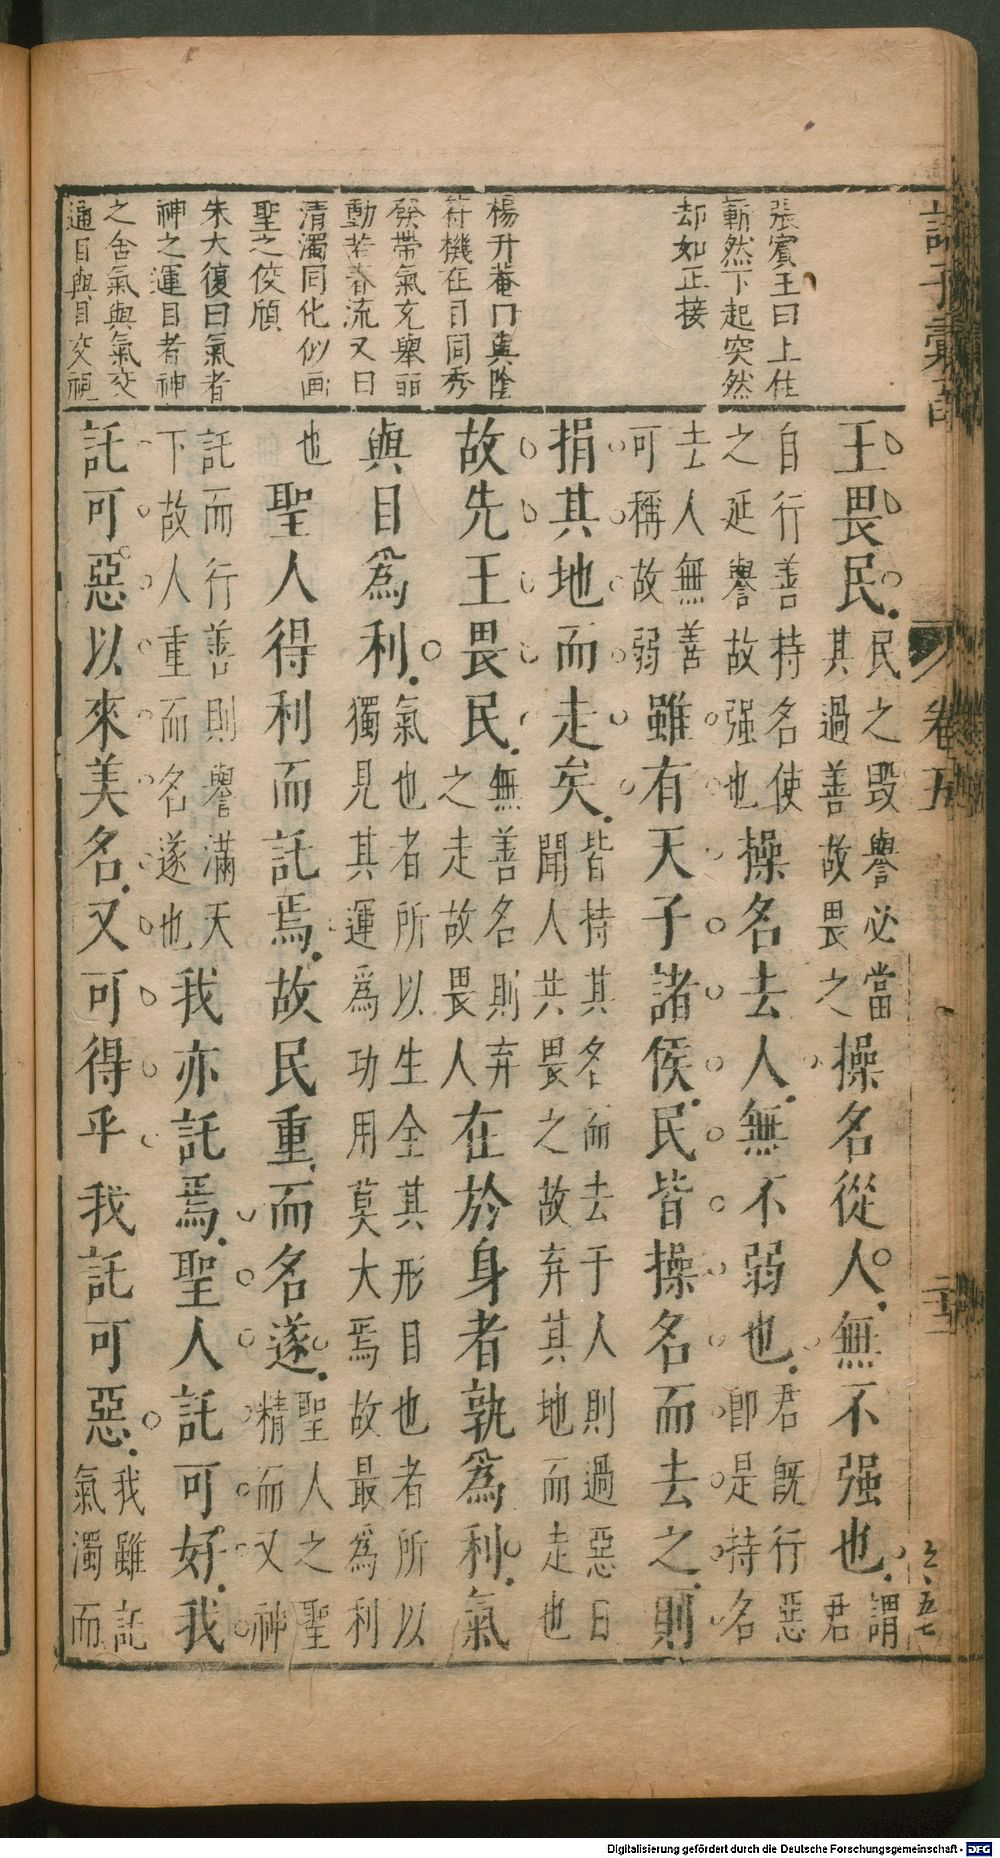 張賓王曰上住
斬然下起突然
却如正接
楊升菴曰真陰
符機在目同秀
發帶氣充舉丽
動若春流又曰
清濁同化似画
聖之俊頎
朱大復曰氣者
神之運目者神
之舍氣與氣交
通目與目交視
王畏民民之毀譽必當其過善故畏之操名從人無不强也謂君
自行善持名使之延譽故强也操名去人無不弱也君既行惡即是持名
去人無善可稱故弱雖有天子諸侯民皆操名而去之則
捐其地而走矣皆持其名而去于人則過惡日聞人共畏之故弃其地而走也
故先王畏民無善名則弃之走故畏人在於身者孰爲利氣
與目爲利氣也者所以生全其形目也者所以獨見其運爲功用莫大焉故最爲利
也聖人得利而託焉故民重而名遂聖人之聖精而又神
託而行善則譽滿天下故人重而名遂也我亦託焉聖人託可好我
託可惡以來美名又可得乎我託可惡我雖託氣濁而
卷五
Digitalisierung gefördert durch die Deutsche Forschungsgemeinschaft - DFG